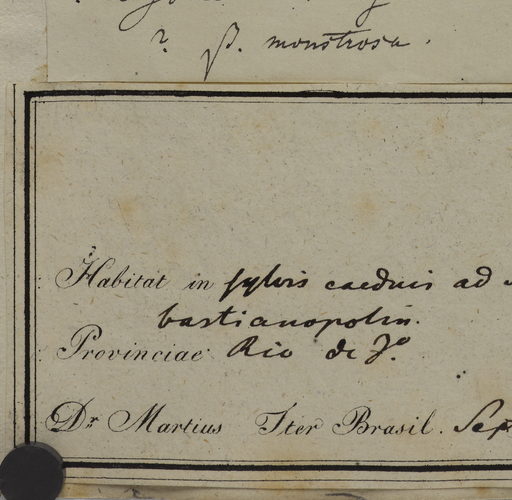 ? β. monstrosa.
Habitat in sylvis caeduis ad
bastianopolin.
Provinciae Rio de Jº
Dr. Martius Iter Brasil. Sep